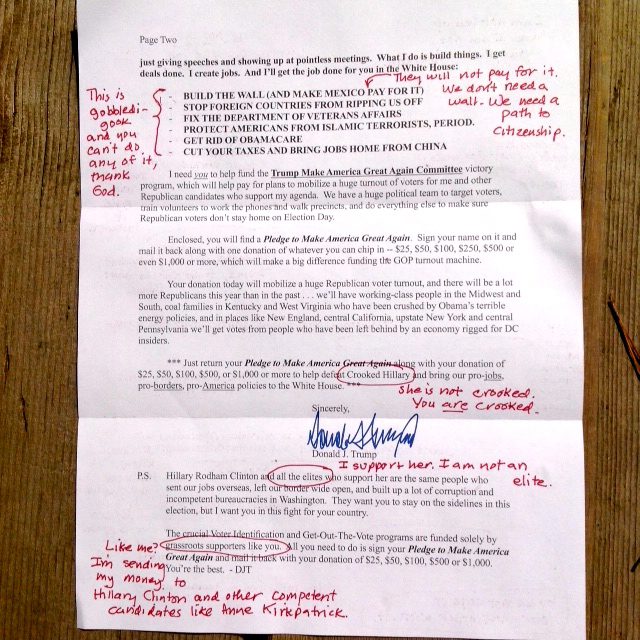 Page Two
just giving speeches and showing up at pointless meetings. What I do is build things. I get
deals done. I create jobs. And I'll get the job done for you in the White House:
They will not pay for it.
We don't need a
wall. We need a
path to
citizenship.
This is
gobbledi-
gook
and you
can't do
any of it,
thank
God.
- BUILD THE WALL (AND MAKE MEXICO PAY FOR IT)
- STOP FOREIGN COUNTRIES FROM RIPPING US OFF
- FIX THE DEPARTMENT OF VETERANS AFFAIRS
- PROTECT AMERICANS FROM ISLAMIC TERRORISTS, PERIOD.
- GET RID OF OBAMACARE
- CUT YOUR TAXES AND BRING JOBS HOME FROM CHINA
I need you to help fund the Trump Make America Great Again Committee victory
program, which will help pay for plans to mobilize a huge turnout of voters for me and other
Republican candidates who support my agenda. We have a huge political team to target voters,
train volunteers to work the phones and walk precincts, and do everything else to make sure
Republican voters don't stay home on Election Day.
Enclosed, you will find a Pledge to Make America Great Again. Sign your name on it and
mail it back along with one donation of whatever you can chip in -- $25, $50, $100, $250, $500 or
even $1,000 or more, which will make a big difference funding the GOP turnout machine.
Your donation today will mobilize a huge Republican voter turnout, and there will be a lot
more Republicans this year than in the past . . . we'll have working-class people in the Midwest and
South, coal families in Kentucky and West Virginia who have been crushed by Obama's terrible
energy policies, and in places like New England, central California, upstate New York and central
Pennsylvania we'll get votes from people who have been left behind by an economy rigged for DC
insiders.
*** Just return your Pledge to Make America Great Again along with your donation of
$25, $50, $100, $500, or $1,000 or more to help defeat Crooked Hillary and bring our pro-jobs,
pro-borders, pro-America policies to the White House. ***
She is not crooked.
You are crooked.
Sincerely,
Donald J. Trump
Donald J. Trump
I support her. I am not an
elite.
P.S. Hillary Rodham Clinton and all the elites who support her are the same people who
sent our jobs overseas, left our border wide open, and built up a lot of corruption and
incompetent bureaucracies in Washington. They want you to stay on the sidelines in this
election, but I want you in this fight for your country.
The crucial Voter Identification and Get-Out-The-Vote programs are funded solely by
grassroots supporters like you. All you need to do is sign your Pledge to Make America
Great Again and mail it back with your donation of $25, $50, $100, $500 or $1,000.
You're the best. - DJT
Like me?
I'm sending
my money to
Hillary Clinton and other competent
candidates like Anne Kirkpatrick.